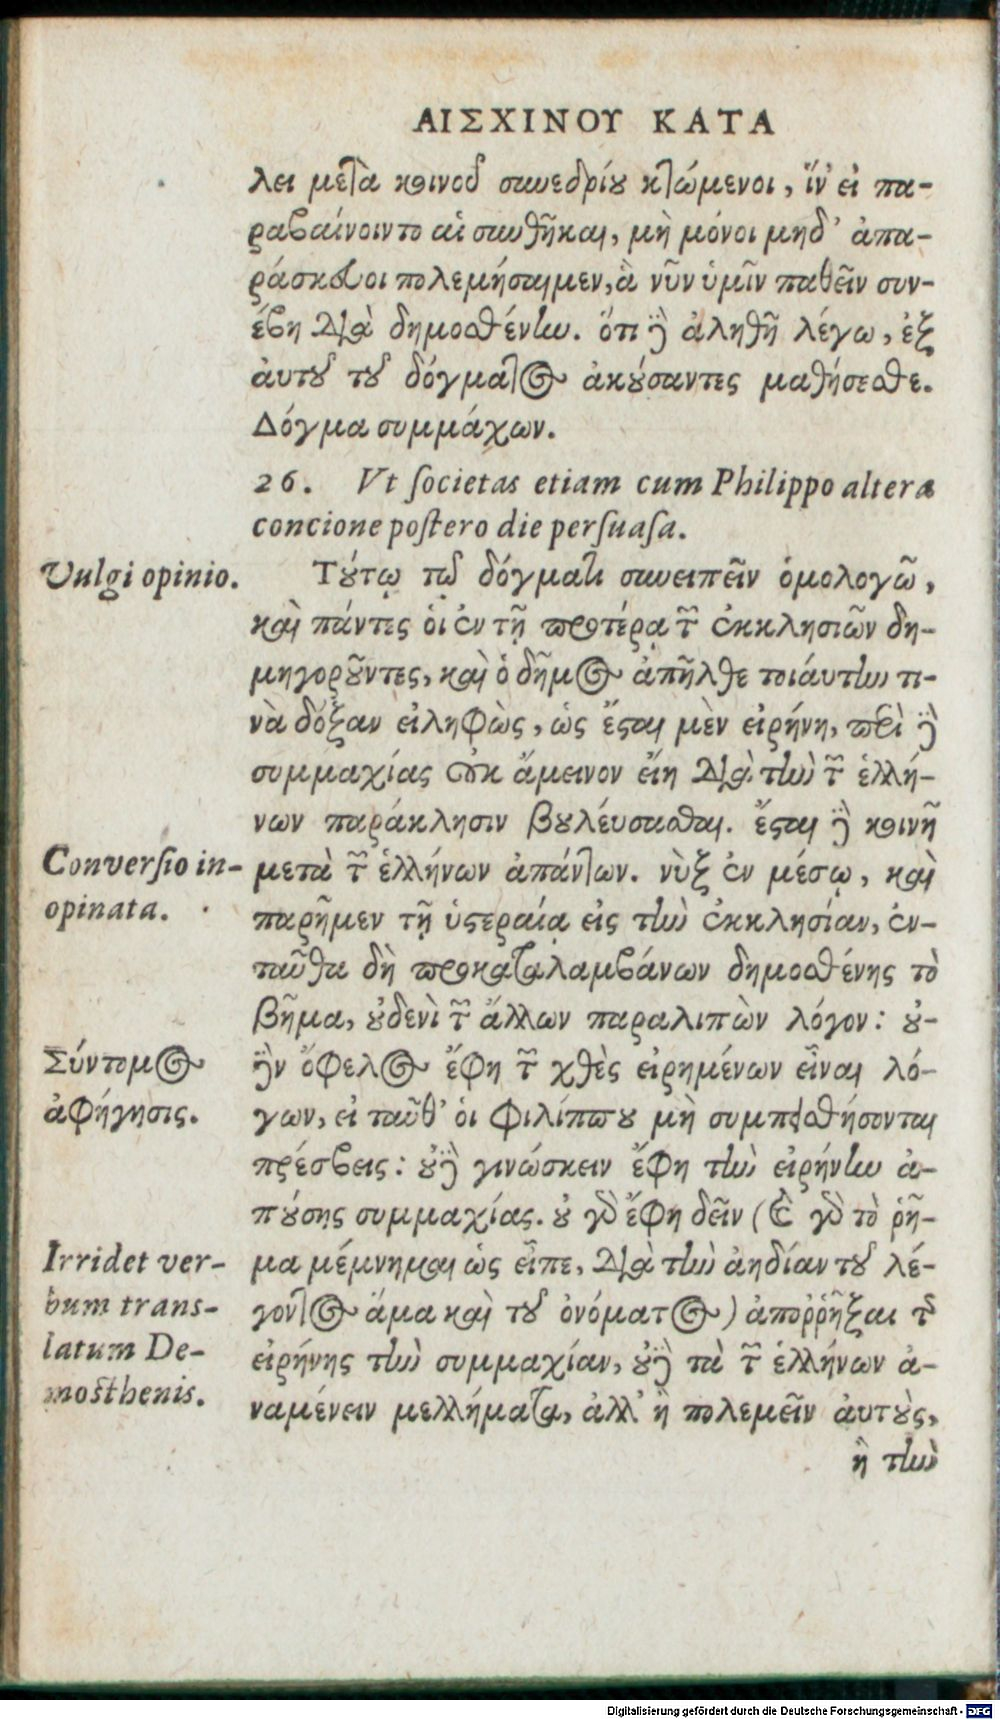 ΑΙΣΧΙΝΟΥ ΚΑΤΑ
λει μετὰ κοινοῦ συνεδρίου κτώμενοι, ἵν' εἰ πα-
ραβαίνοιντο αἱ συνθῆκαι, μὴ μόνοι μηδ' ἀπα-
ράσκευοι πολεμήσαιμεν, ἃ νῦν ὑμῖν παθεῖν συν-
έβη διὰ δημοσθένην. ὅτι δὲ ἀληθῆ λέγω, ἐξ
ἀυτοῦ τοῦ δόγματος ἀκούσαντες μαθήσεσθε.
Δόγμα συμμάχων.
26. Vt societas etiam cum Philippo altera
concione postero die persuasa.
Vulgi opinio.
Τούτῳ τῷ δόγματι συνειπεῖν ὁμολογῶ,
καὶ πάντες οἱ ἐν τῇ προτέρᾳ τῶν ἐκκλησιῶν δη-
μηγοροῦντες, καὶ ὁ δῆμος ἀπῆλθε τοιάυτην τι-
νὰ δόξαν εἰληφὼς, ὡς ἔσται μὲν εἰρήνη, περὶ δὲ
συμμαχίας οὐκ ἄμεινον εἴη διὰ τὴν τῶν ἑλλή-
νων παράκλησιν βουλέυσασθαι. ἔσται δὲ κοινῇ
Conversio in-
opinata.
μετὰ τῶν ἑλλήνων ἁπάντων. νὺξ ἐν μέσῳ, καὶ
παρῆμεν τῇ ὑστεραίᾳ εἰς τὴν ἐκκλησίαν, ἐν-
ταῦθα δὴ προκαταλαμβάνων δημοσθένης τὸ
βῆμα, οὐδενὶ τῶν ἄλλων παραλιπὼν λόγον: οὐ-
Σύντομος
ἀφήγησις.
δὲν ὄφελος ἔφη τῶν χθὲς εἰρημένων εἶναι λό-
γων, εἰ ταῦθ' οἱ Φιλίππου μὴ συμπεισθήσονται
πρέσβεις: οὐδὲ γινώσκειν ἔφη τὴν εἰρήνην ἀ-
πούσης συμμαχίας. οὐ γὰρ ἔφη δεῖν (καὶ γὰρ τὸ ῥῆ-
Irridet ver-
bum trans-
latum De-
mosthenis.
μα μέμνημαι ὡς εἶπε, διὰ τὴν ἀηδίαν τοῦ λέ-
γοντος ἅμα καὶ τοῦ ὀνόματος) ἀποῤῥῆξαι τῆς
εἰρήνης τὴν συμμαχίαν, οὐδὲ τὰ τῶν ἑλλήνων ἀ-
ναμένειν μελλήματα, ἀλλ' ἢ πολεμεῖν ἀυτοὺς,
ἢ τὴν
Digitalisierung gefördert durch die Deutsche Forschungsgemeinschaft - DFG